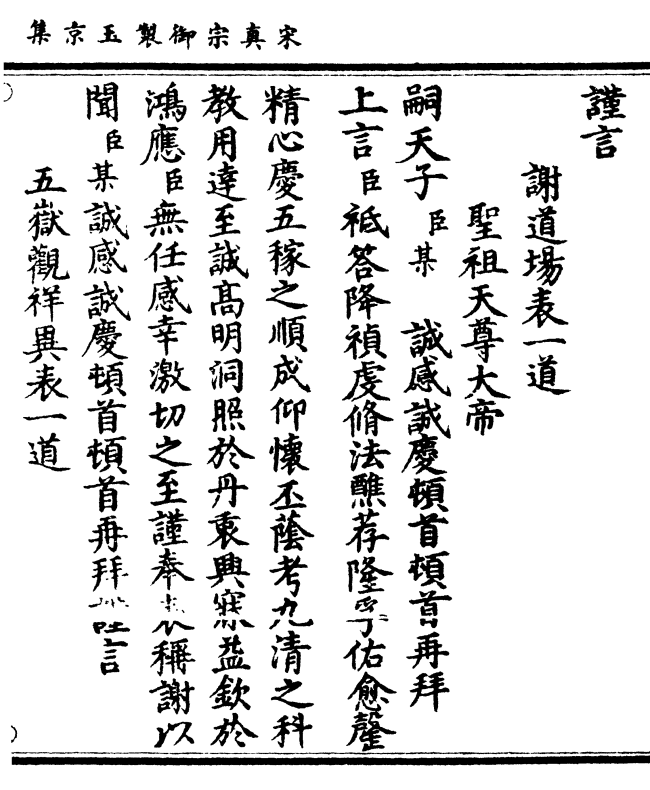 宋真宗御製玉京集
謹言
謝道場表一道
聖祖天尊大帝
嗣天子臣某 誠感誠慶頓首頓首再拜
上言臣祗答降禎虔脩法醮荐隆孚佑愈罄
精心慶五稼之順成仰懷丕蔭考九清之科
教用達至誠高明洞照於丹衷興寐益欽於
鴻應臣無任感幸激切之至謹奉表稱謝以
聞臣某誠感誠慶頓首頓首再拜謹言
五嶽觀祥異表一道